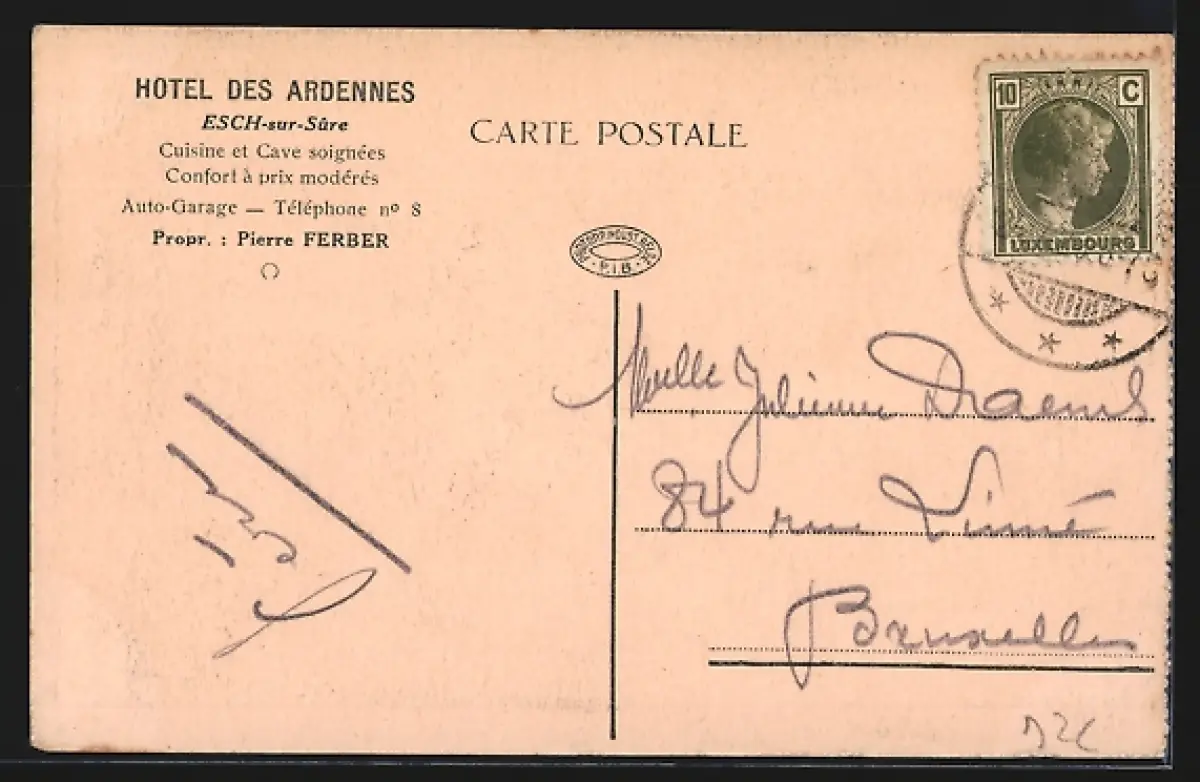 HOTEL DES ARDENNES
ESCH-sur-Sûre
Cuisine et Cave soignées
Confort à prix modérés
Auto-Garage — Téléphone nº 8
Propr. : Pierre FERBER
CARTE POSTALE
10 C
LUXEMBOURG
P.I.B.
Melle Julienne
84 rue Linné
Bruxelles